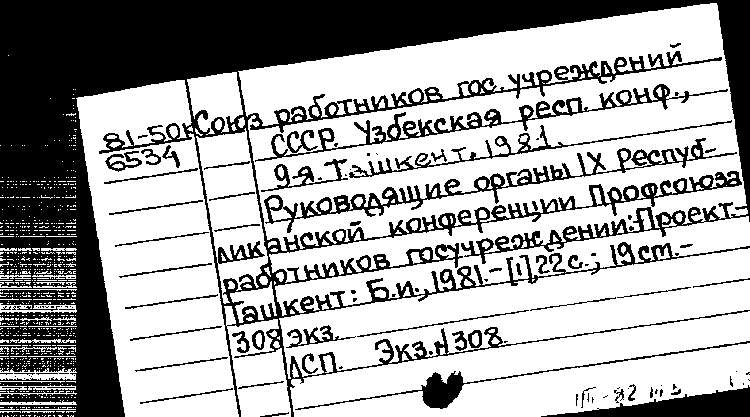 81-50к Союз работников гос. учреждений
6534 СССР. Узбекская респ. конф.,
9-я. Ташкент. 1981.
Руководящие органы IX Респуб-
ликанской конференции Профсоюза
работников госучреждений: Проект-
Ташкент: Б.и., 1981.-[1], 22 с.; 19 cm.-
308 экз.
ДСП. Экз. № 308.
III-82